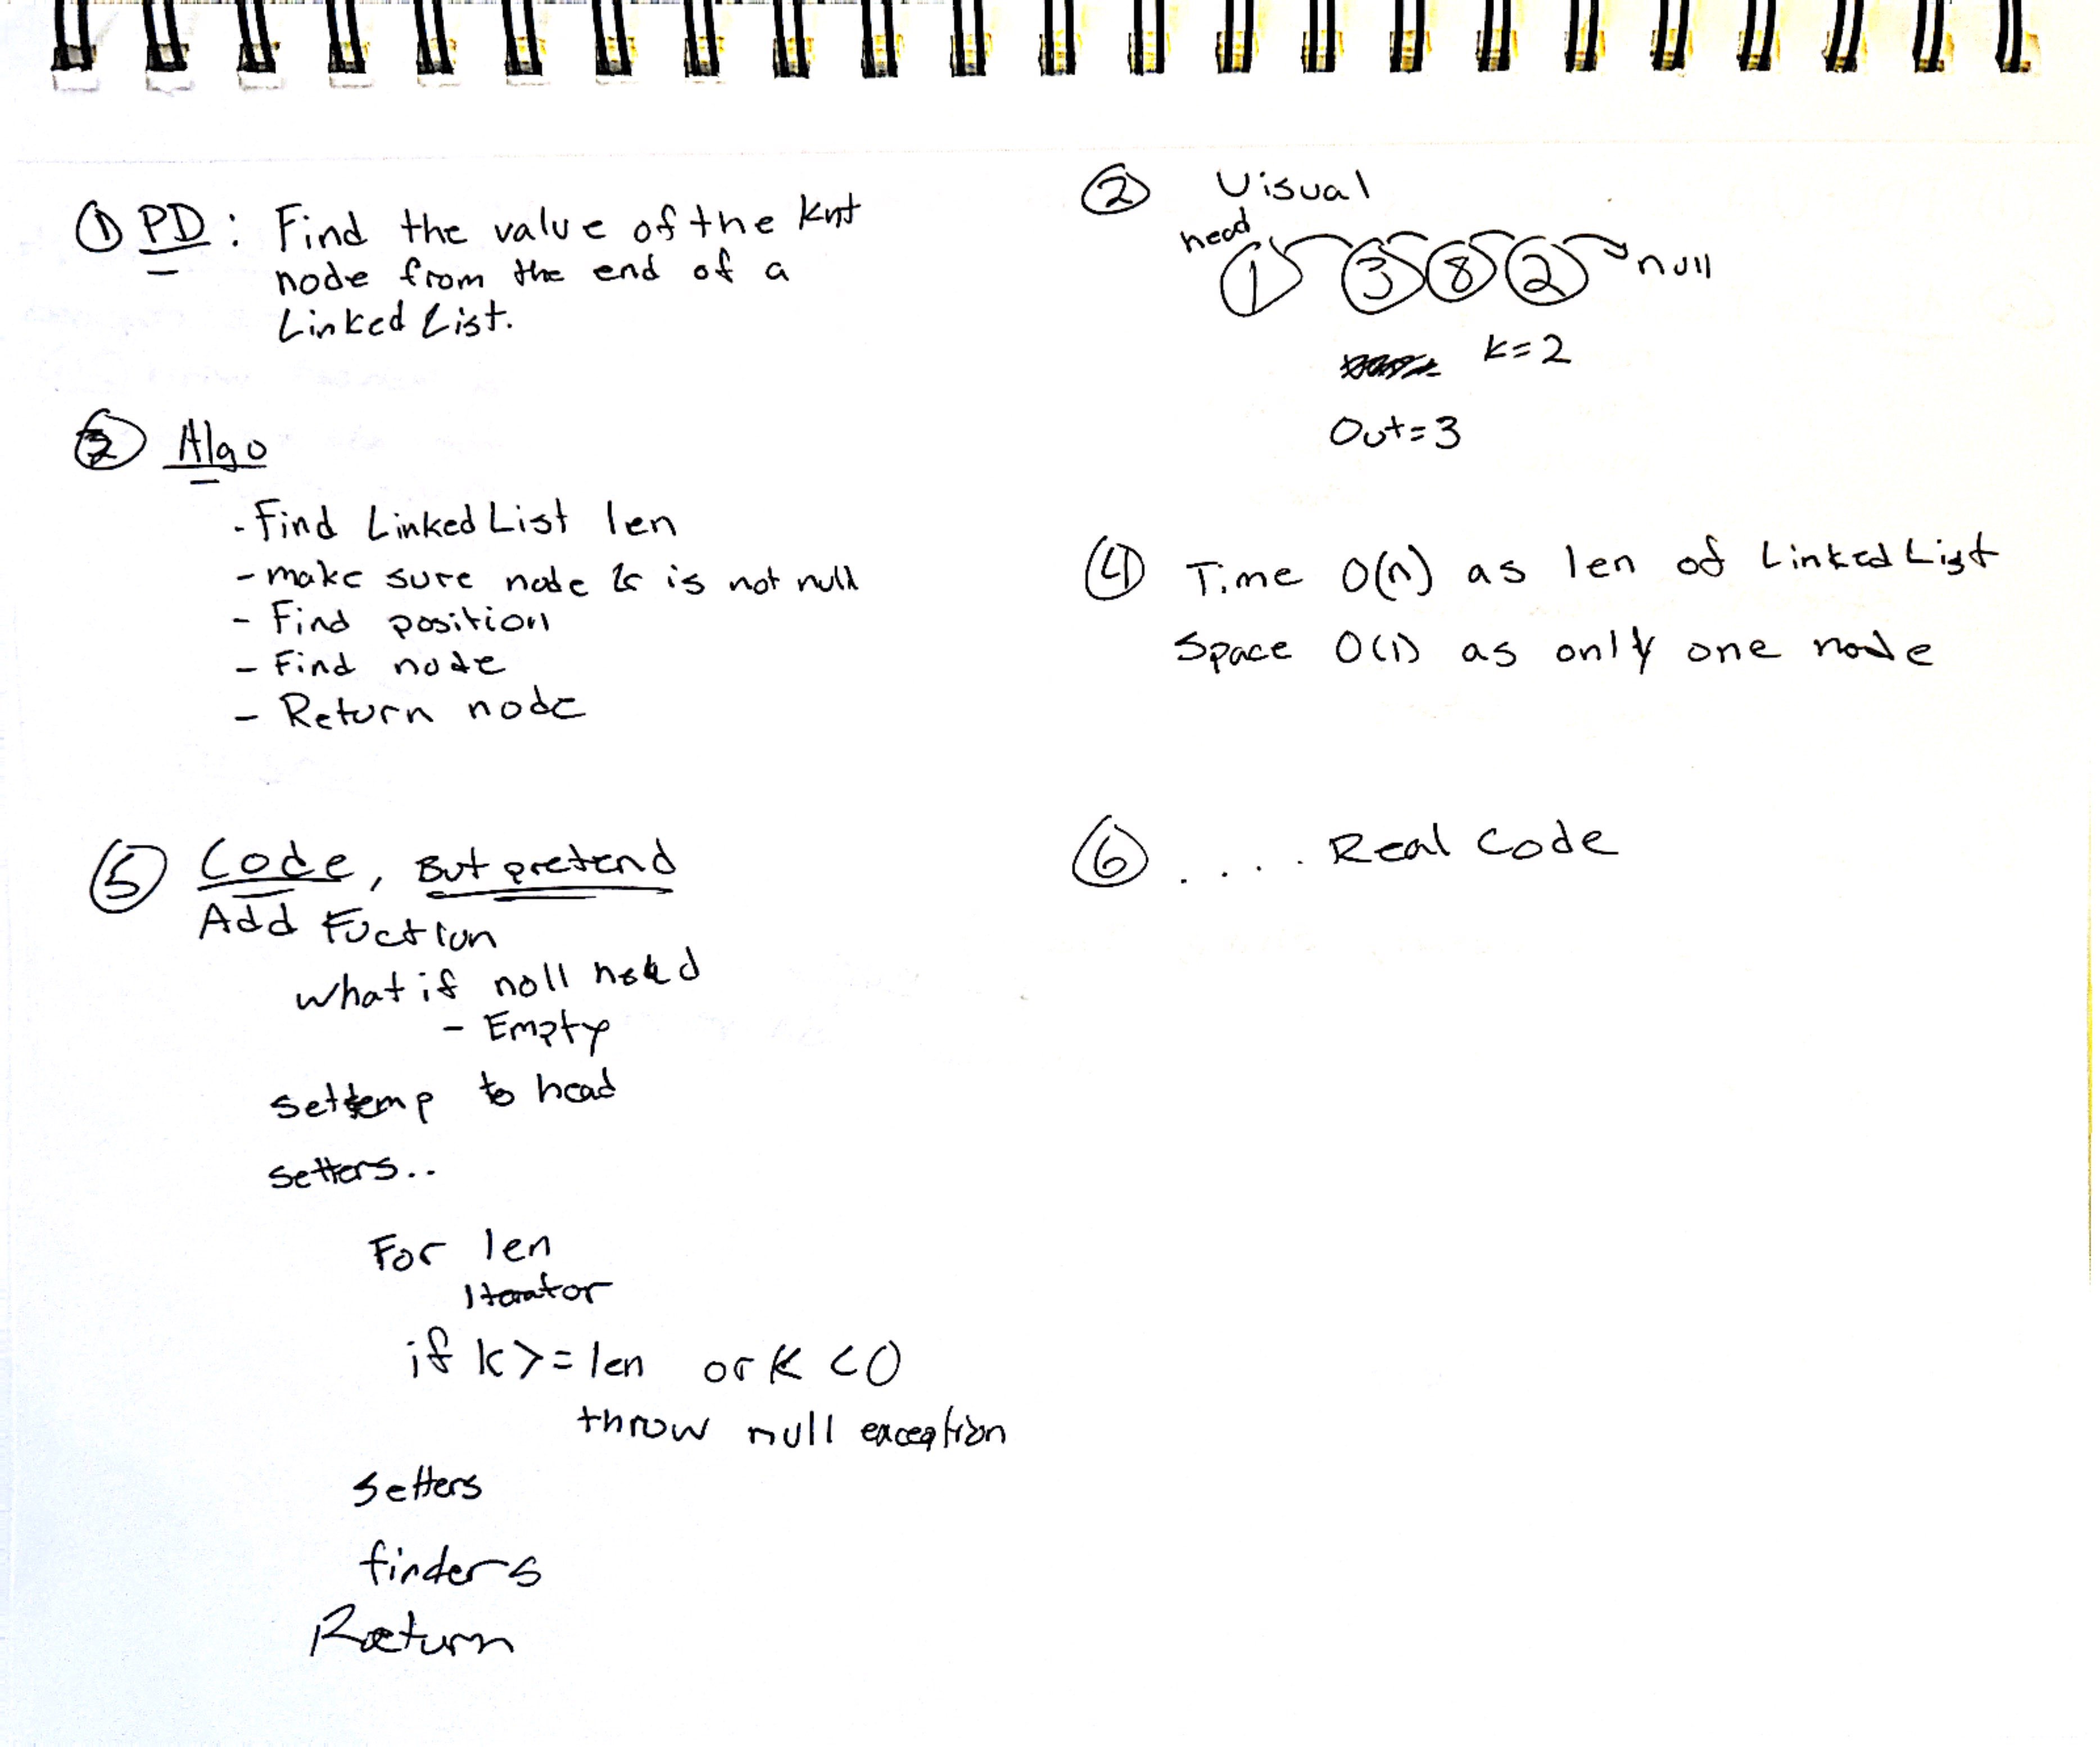 ① PD: Find the value of the Knt
node from the end of a
Linked List.
② Visual
head
1 3 8 2 null
k=2
Out=3
③ Algo
- Find Linked List len
- make sure node k is not null
- Find position
- Find node
- Return node
④ Time O(n) as len of Linked List
Space O(1) as only one node
⑤ Code, But pretend
Add Fuction
what if noll
- Empty
set temp to head
setters..
For len
Iterator
if k >= len or k < 0
throw null exception
setters
finders
Return
⑥ .... Real Code